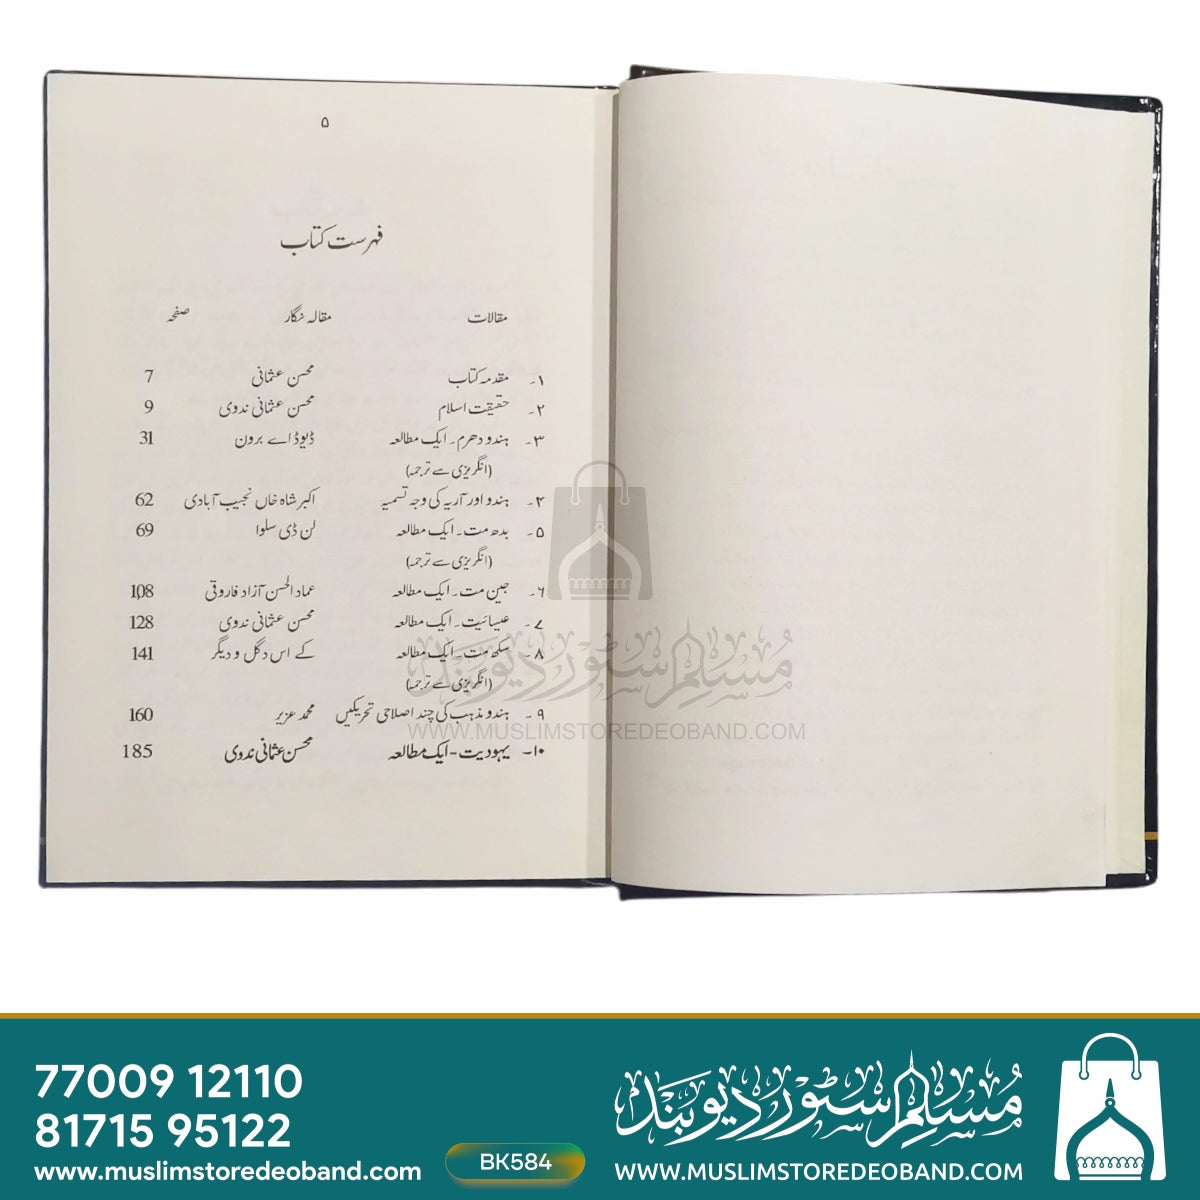 ۵
فہرست کتاب
مقالات مقالہ نگار صفحہ
۱۔ مقدمہ کتاب محسن عثمانی 7
۲۔ حقیقت اسلام محسن عثمانی ندوی 9
۳۔ ہندو دھرم۔ ایک مطالعہ ڈیوڈ اے برون 31
(انگریزی سے ترجمہ)
۴۔ ہندو اور آریہ کی وجہ تسمیہ اکبر شاہ خاں نجیب آبادی 62
۵۔ بدھ مت۔ ایک مطالعہ لن ڈی سلوا 69
(انگریزی سے ترجمہ)
۶۔ جین مت۔ ایک مطالعہ عماد الحسن آزاد فاروقی 108
۷۔ عیسائیت۔ ایک مطالعہ محسن عثمانی ندوی 128
۸۔ سکھ مت۔ ایک مطالعہ کے اس دگل و دیگر 141
(انگریزی سے ترجمہ)
۹۔ ہندو مذہب کی چند اصلاحی تحریکیں محمد عزیر 160
۱۰۔ یہودیت۔ ایک مطالعہ محسن عثمانی ندوی 185
مسلم سٹور دیوبند
WWW.MUSLIMSTOREDEOBAND.COM
77009 12110
81715 95122
www.muslimstoredeoband.com
BK584
مسلم سٹور دیوبند
WWW.MUSLIMSTOREDEOBAND.COM